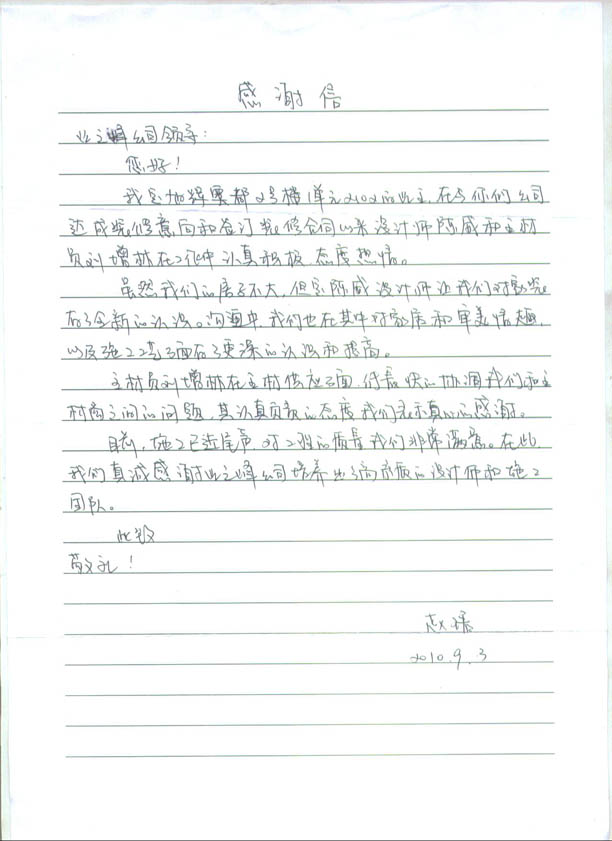 感谢信
业之峰公司领导：
您好！
我是旭辉奥都2号楼1单元2102的业主，在与你们公司
达成装修意向和签订装修合同以来设计师陈威和主材
员刘增林在工作中认真积极，态度热情。
虽然我们的房子不大，但是陈威设计师让我们对家装
有了全新的认识。沟通中，我们也在其中对家居和审美情趣，
以及施工工艺方面有了更深的认识和提高。
主材员刘增林在主材供应方面，尽最快的协调我们和主
材商之间的问题，其认真负责的态度我们表示真心的感谢。
目前，施工已近尾声，对工程的质量我们非常满意。在此，
我们真诚感谢业之峰公司培养出了高素质的设计师和施工
团队。
此致
敬礼！
赵
2010.9.3